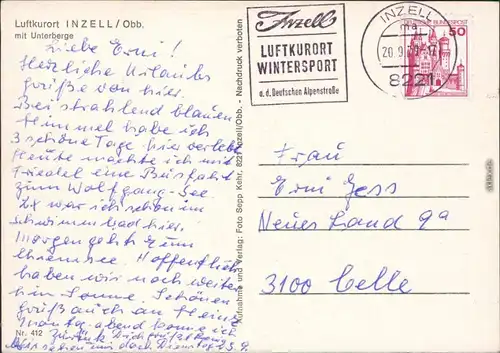 Luftkurort INZELL/Obb.
mit Unterberge
Liebe Erni!
Herzliche Urlaubs
grüße von hier.
Bei strahlend blauen
Himmel habe ich
3 schöne Tage hier verlebt
Heute machte ich mit
eine Busfahrt
zum Wolfgang-See.
war ich schon im
Schwimmbad hier.
Morgen geht's zum
Chiemsee. Hoffentlich
haben wir noch weiter
hin Sonne. Schönen
Gruß auch an Heinz
abend komme ich
zurück Dich grüßt
Wir sehen uns doch Dienstag
Nr. 412
Aufnahme und Verlag: Foto Sepp Kehr, 8221 Inzell/Obb. - Nachdruck verboten
Inzell
LUFTKURORT
WINTERSPORT
a.d. Deutschen Alpenstraße
INZELL
ma
20.9.
8221
DEUTSCHE BUNDESPOST
50
Frau
Erni Jess
Neues Land 9a
3100 Celle